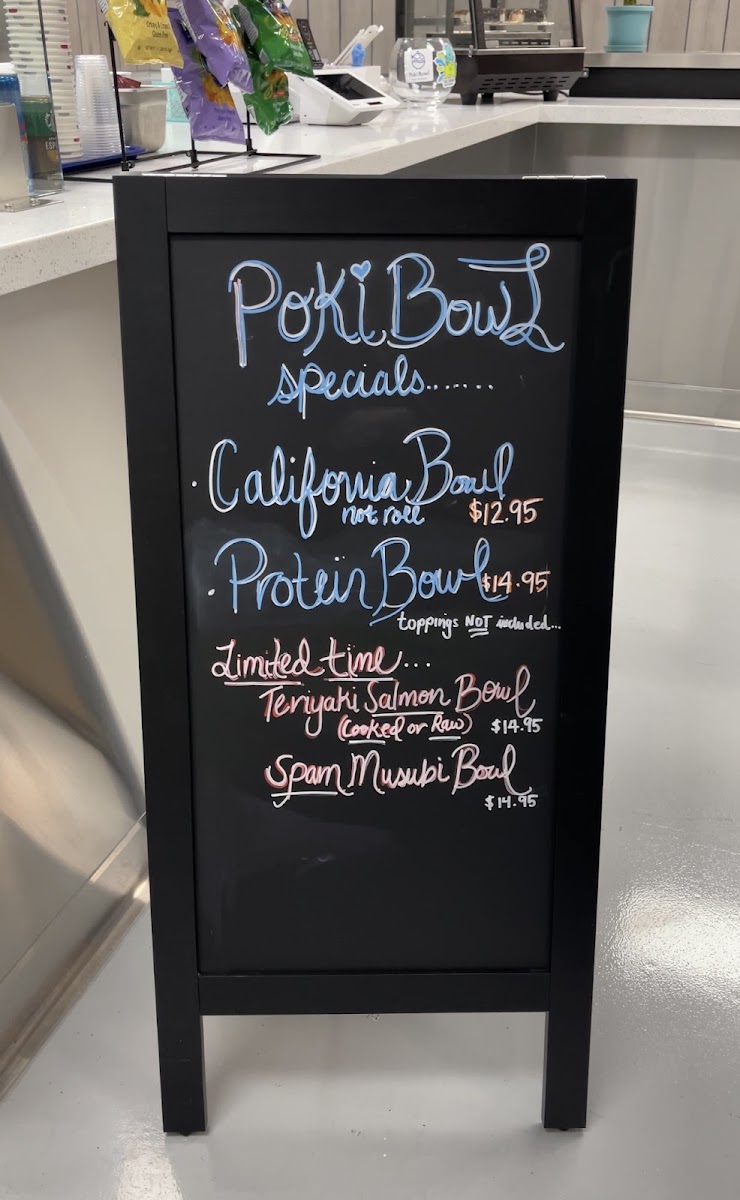 Poki Bowl
specials.......
· California Bowl
not roll $12.95
· Protein Bowl $14.95
toppings NOT included...
Limited time...
Teriyaki Salmon Bowl
(Cooked or Raw) $14.95
Spam Musubi Bowl
$14.95